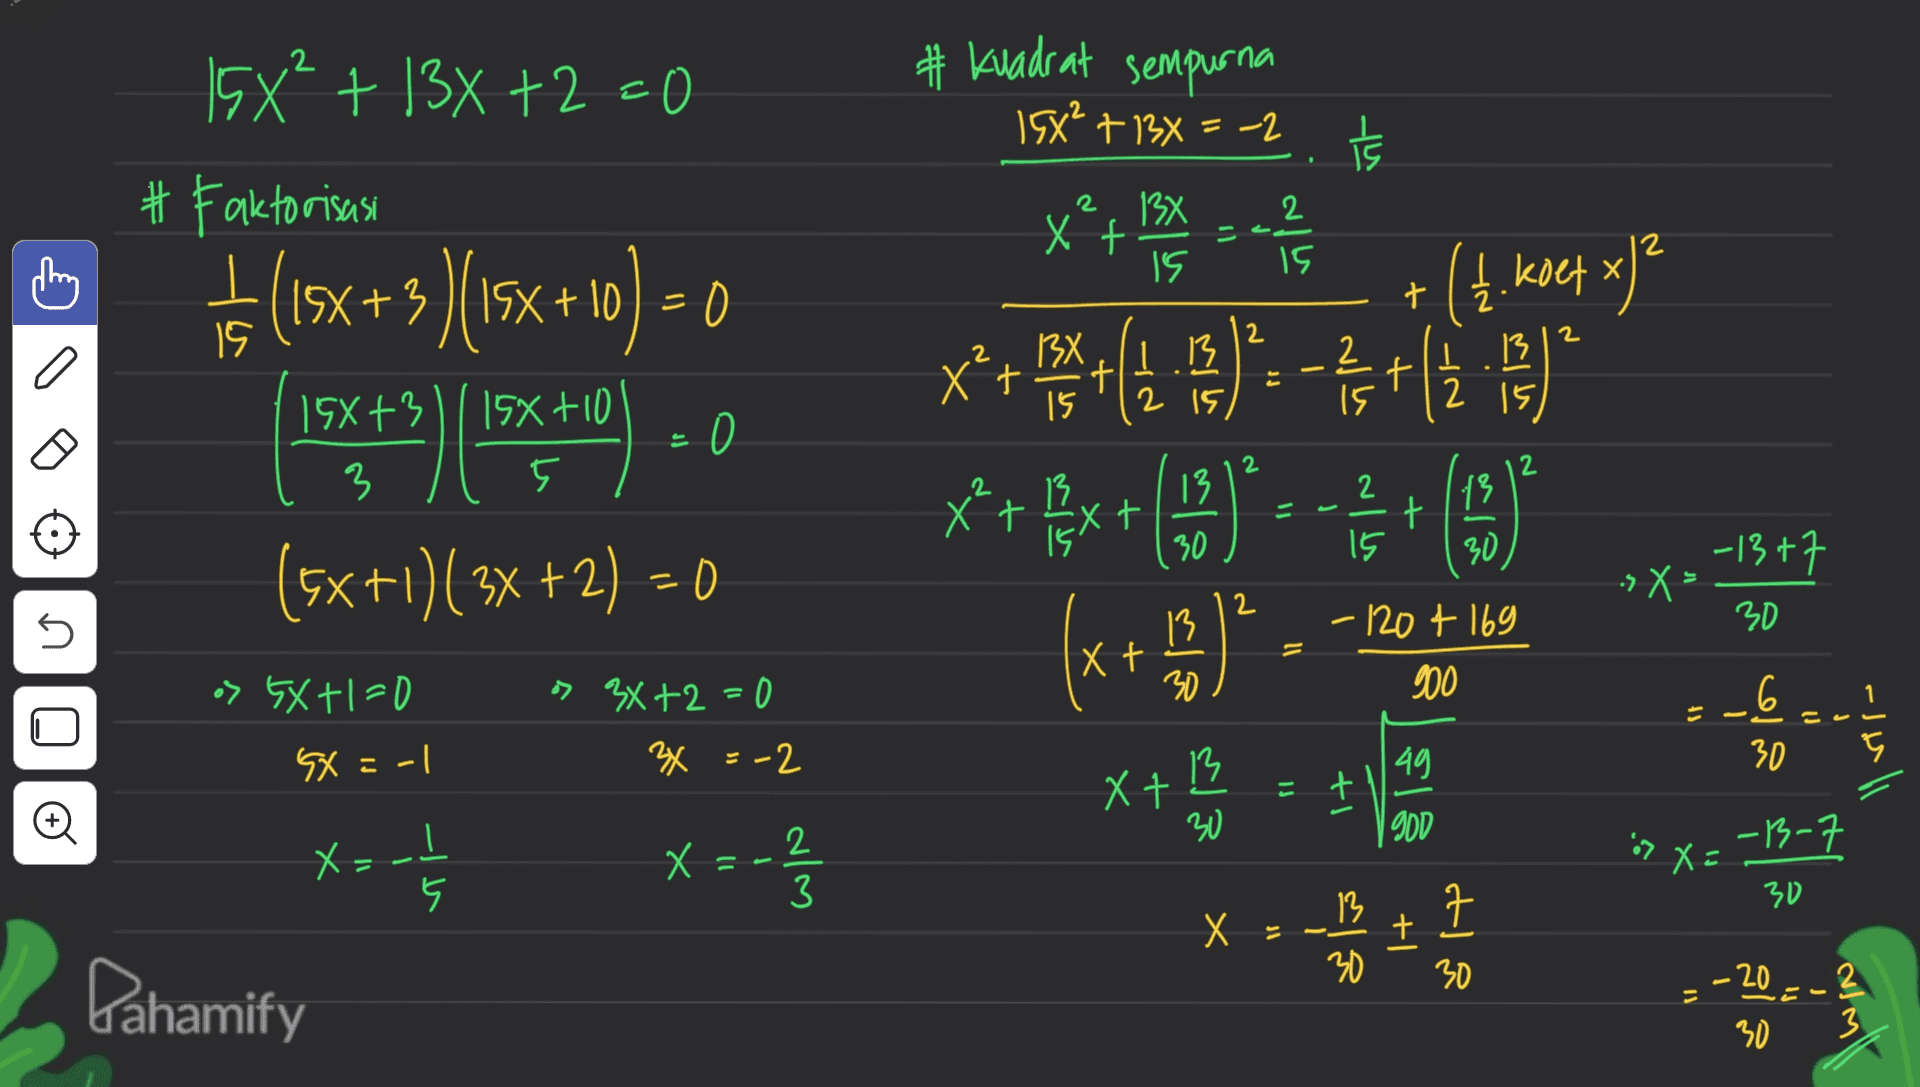 15x² + 13x + 2 = 0
# Faktorisasi
1/15 (15x + 3)(15x + 10) = 0
((15x + 3)/3)((15x + 10)/5) = 0
(5x + 1)(3x + 2) = 0
∘> 5x + 1 = 0   ∘> 3x + 2 = 0
5x = -1   3x = -2
x = -1/5   x = -2/3
# kuadrat sempurna
15x² + 13x = -2   . 1/15
x² + 13x/15 = -2/15
+ (1/2 . koef x)²
x² + 13x/15 + (1/2 . 13/15)² = -2/15 + (1/2 . 13/15)²
x² + 13/15 x + (13/30)² = -2/15 + (13/30)²
(x + 13/30)² = (-120 + 169)/900
x + 13/30 = ±√(49/900)
x = -13/30 ± 7/30
∘> x = (-13 + 7)/30
= -6/30 = -1/5
∘> x = (-13 - 7)/30
= -20/30 = -2/3
Pahamify